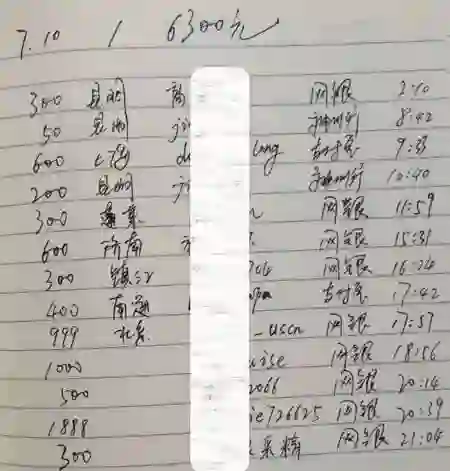 7.10 1 6300元
300 昆明 网银 2:10
50 昆明 8:42
600 上海 ang 支付宝 9:33
200 昆明 10:40
300 蓬莱 网银 11:59
600 济南 网银 15:31
300 镇江 网银 16:24
400 南 支付宝 17:42
999 北京 _uscn 网银 17:57
1000 uise 网银 18:56
500 2066 网银 20:14
1888 ie726625 网银 20:39
300 网银 21:04